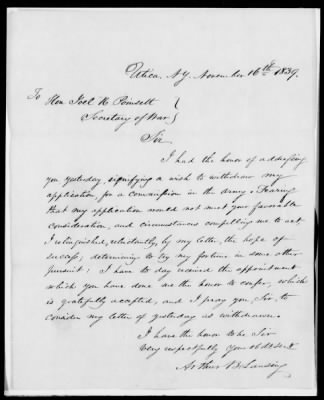 Utica, N.Y. November 16th 1839.
To
Hon. Joel R Poinsett
Secretary of War
Sir
I had the honor of addressing
you yesterday signifying a wish to withdraw my
application, for a commission in the army. Fearing
that my application would not meet your favorable
consideration, and circumstances compelling me to act
I relinquished, reluctantly, by my letter, the hope of
success; determining to try my fortune in some other
pursuit; I have to day received the appointment
which you have done me the honor to confer, which
is gratefully accepted, and I pray you, Sir, to
consider my letter of yesterday as withdrawn.
I have the honor to be Sir
Very respectfully your obt Servt
Arthur B. Lansing